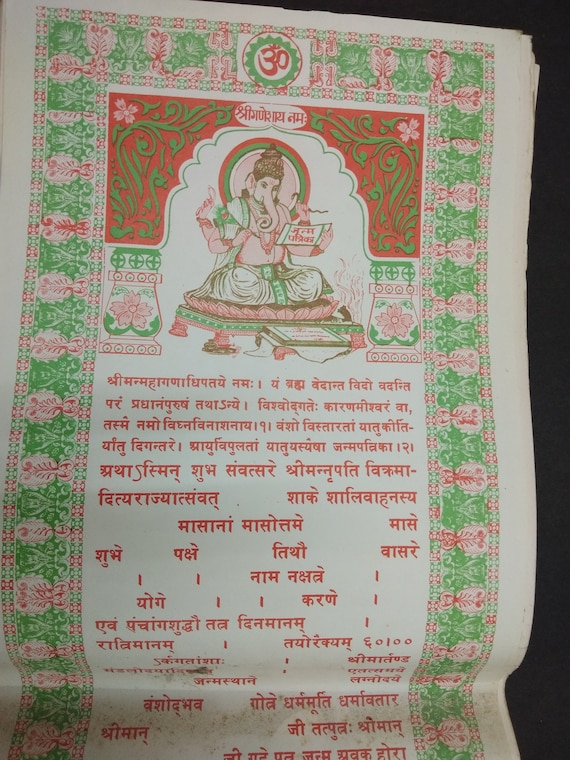 ॐ
श्रीगणेशाय नमः
जन्म
पत्रिका
श्रीमन्महागणाधिपतये नमः। यं ब्रह्म वेदान्त विदो वदन्ति
परं प्रधानंपुरुषं तथाऽन्ये। विश्वोद्गतेः कारणमीश्वरं वा,
तस्मै नमो विघ्नविनाशनाय।१। वंशो विस्तारतां यातुकीर्ति-
र्यातु दिगन्तरे। आयुर्विपुलतां यातुयस्येषा जन्मपत्रिका।२।
अथाऽस्मिन् शुभ संवत्सरे श्रीमन्नृपति विक्रमा-
दित्यराज्यात्संवत् शाके शालिवाहनस्य
मासानां मासोत्तमे मासे
शुभे पक्षे तिथौ वासरे
। । नाम नक्षत्रे ।
योगे । । करणे ।
एवं पंचांगशुद्धौ तत्र दिनमानम् ।
रात्रिमानम् । तयोरैक्यम् ६०।००
ऽर्कगतांशाः । श्रीमार्तण्ड
एतत्समये
जन्मस्थाने लग्नोदये
वंशोद्भव गोत्रे धर्ममूर्ति धर्मावतार
श्रीमान् जी तत्पुत्रः श्रीमान्
जी गृहे पुत्र जन्म
होरा